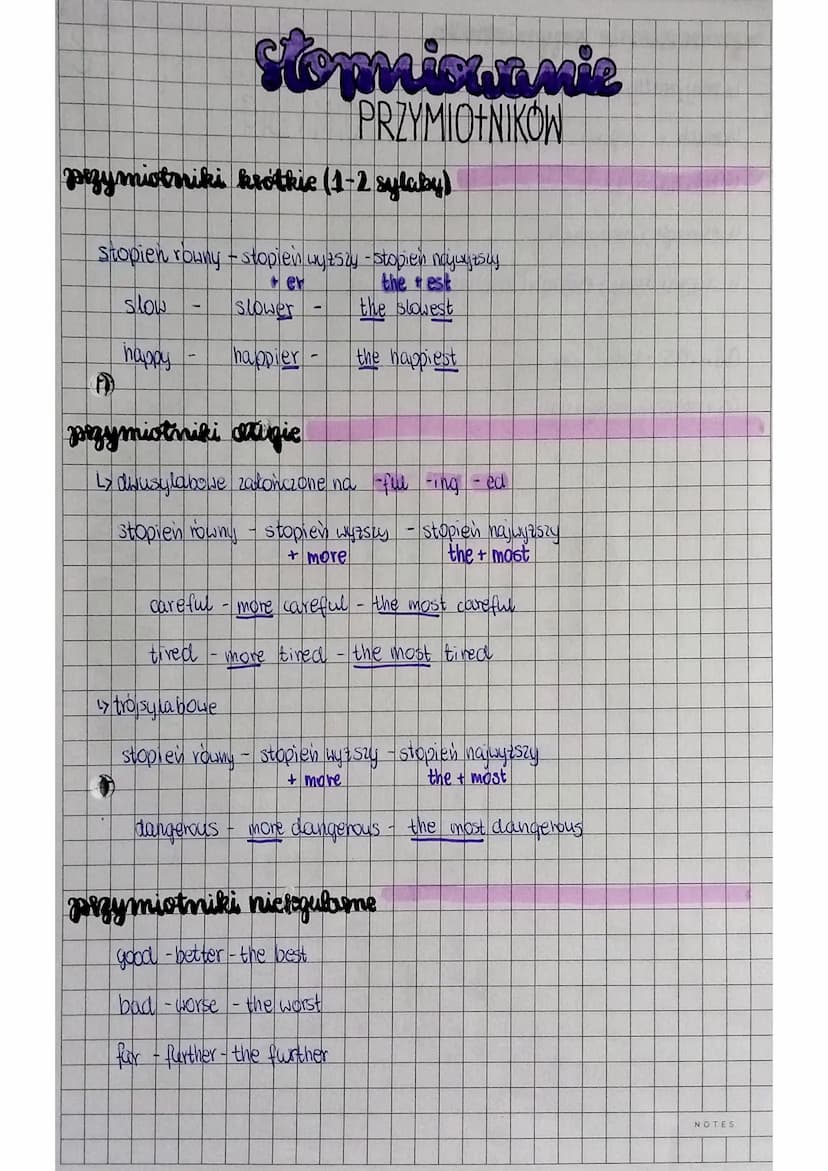 stopniowanie
PRZYMIOTNIKÓW
przymiotniki krótkie (1-2 sylaby)
stopień równy - stopień wyższy - stopień najwyższy
+ er the + est
slow - slower - the slowest
happy - happier - the happiest
przymiotniki długie
↳ dwusylabowe zakończone na -ful -ing -ed
stopień równy - stopień wyższy - stopień najwyższy
+ more the + most
careful - more careful - the most careful
tired - more tired - the most tired
↳ trójsylabowe
stopień równy - stopień wyższy - stopień najwyższy
+ more the + most
dangerous - more dangerous - the most dangerous
przymiotniki nieregularne
good - better - the best
bad - worse - the worst
far - further - the further
NOTES